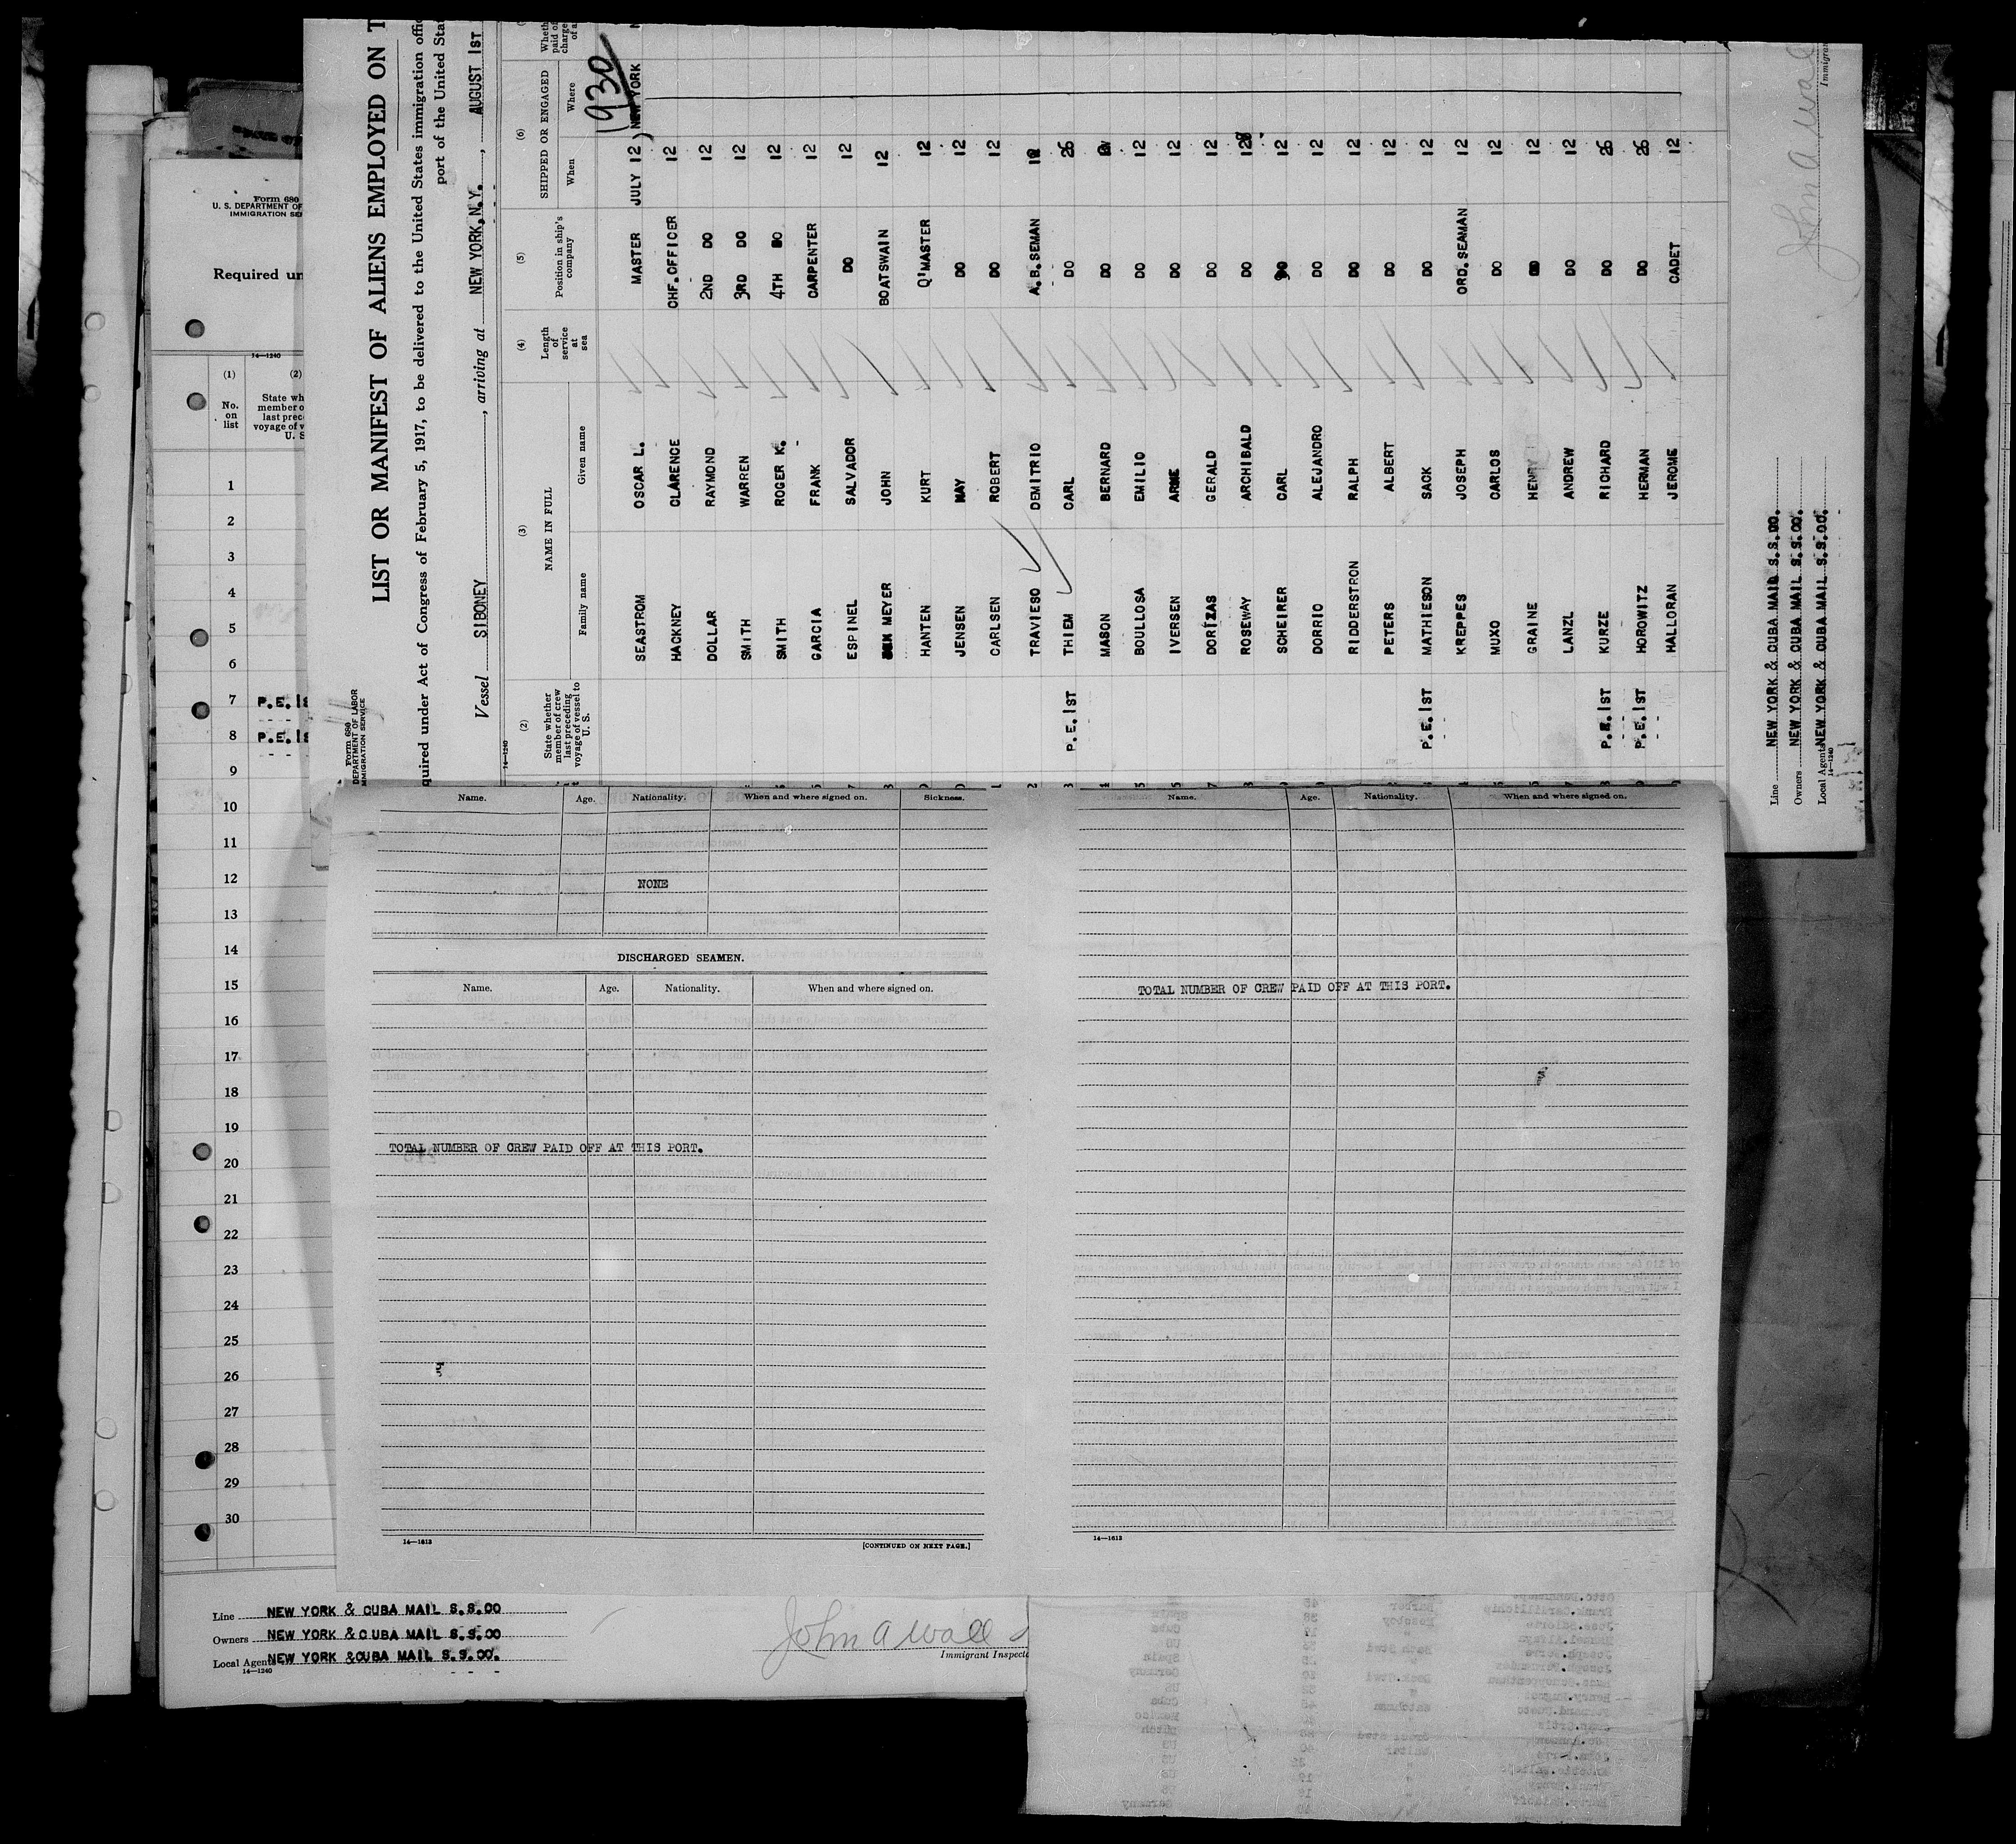 Form 680
U. S. DEPARTMENT OF
IMMIGRATION SER
Required un
14—1240
(1)
(2)
No.
on
list
State wh
member o
last prec
voyage of v
U. S
1
2
3
4
5
6
7 P.E.1S
8 P.E.1S
9
10
11
12
13
14
15
16
17
18
19
20
21
22
23
24
25
26
27
28
29
30
Line NEW YORK & CUBA MAIL S.S.CO
Owners NEW YORK & CUBA MAIL S.S.CO
Local Agents NEW YORK &CUBA MAIL S.S.CO.
14—1240
John A Wall
Immigrant Inspect
Form 680
DEPARTMENT OF LABOR
IMMIGRATION SERVICE
LIST OR MANIFEST OF ALIENS EMPLOYED ON T
quired under Act of Congress of February 5, 1917, to be delivered to the United States immigration offic
port of the United Sta
Vessel SIBONEY, arriving at NEW YORK, N.Y., AUGUST 1ST
14—1240
(2) (3) (4) (5) (6)
State whether member of crew last preceding voyage of vessel to U. S.
NAME IN FULL
Family name Given name
Length of service at sea
Position in ship's company
SHIPPED OR ENGAGED
When Where
1930
SEASTROM OSCAR L. MASTER JULY 12 NEW YORK
HACKNEY CLARENCE CHF.OFFICER 12
DOLLAR RAYMOND 2ND DO 12
SMITH WARREN 3RD DO 12
SMITH ROGER K. 4TH DO 12
GARCIA FRANK CARPENTER 12
ESPINEL SALVADOR DO 12
MEYER JOHN BOATSWAIN 12
HANTEN KURT Q'MASTER 12
JENSEN MAY DO 12
CARLSEN ROBERT DO 12
TRAVIESO DEMITRIO A.B.SEMAN 12
P.E.1ST THIEM CARL DO 26
MASON BERNARD DO
BOULLOSA EMILIO DO 12
IVERSEN ARNE DO 12
DORIZAS GERALD DO 12
ROSEWAY ARCHIBALD DO 12
SCHEIRER CARL DO 12
DORRIO ALEJANDRO DO 12
RIDDERSTRON RALPH DO 12
PETERS ALBERT DO 12
P.E.1ST MATHIESON SACK DO 12
KREPPES JOSEPH ORD.SEAMAN 12
MUXO CARLOS DO 12
GRAINE HENRY DO 12
LANZL ANDREW DO 12
P.E.1ST KURZE RICHARD DO 26
P.E.1ST HOROWITZ HERMAN DO 26
HALLORAN JEROME CADET 12
Line NEW YORK & CUBA MAIL S.S.CO.
Owners NEW YORK & CUBA MAIL S.S.CO.
Local Agents NEW YORK & CUBA MAIL S.S.CO.
14—1240
John A Wall
Immigran
Name. Age. Nationality. When and where signed on. Sickness.
NONE
DISCHARGED SEAMEN.
Name. Age. Nationality. When and where signed on.
TOTAL NUMBER OF CREW PAID OFF AT THIS PORT.
14—1613
[CONTINUED ON NEXT PAGE.]
Name. Age. Nationality. When and where signed on.
TOTAL NUMBER OF CREW PAID OFF AT THIS PORT.
14—1613